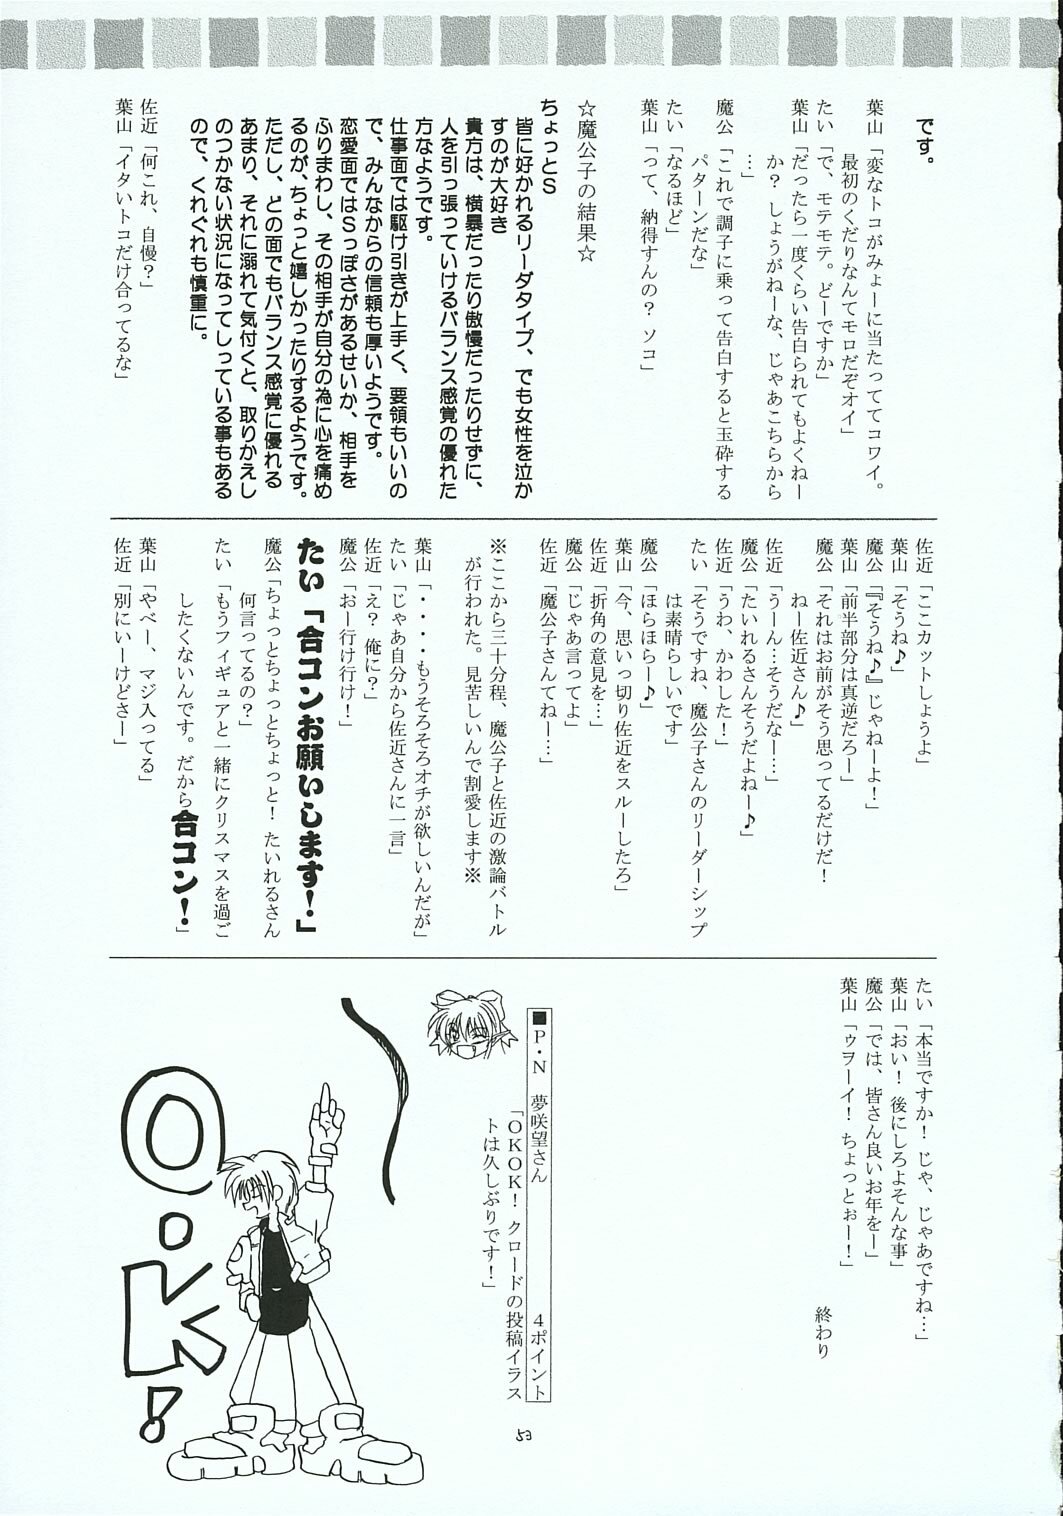 です。
葉山「変なトコがみょーに当たっててコワイ。
最初のくだりなんてモロだぞオイ」
たい「で、モテモテ。どーですか」
葉山「だったら一度くらい告白られてもよくねー
か？しょうがねーな、じゃあこちらから
…」
魔公「これで調子に乗って告白すると玉砕する
パターンだな」
たい「なるほど」
葉山「って、納得すんの？ソコ」
☆魔公子の結果☆
ちょっとＳ
皆に好かれるリーダタイプ、でも女性を泣か
すのが大好き
貴方は、横暴だったり傲慢だったりせずに、
人を引っ張っていけるバランス感覚の優れた
方なようです。
仕事面では駆け引きが上手く、要領もいいの
で、みんなからの信頼も厚いようです。
恋愛面ではＳっぽさがあるせいか、相手を
ふりまわし、その相手が自分の為に心を痛め
るのが、ちょっと嬉しかったりするようです。
ただし、どの面でもバランス感覚に優れる
あまり、それに溺れて気付くと、取りかえし
のつかない状況になってしっている事もある
ので、くれぐれも慎重に。
佐近「何これ、自慢？」
葉山「イタいトコだけ合ってるな」
佐近「ここカットしょうよ」
葉山「そうね♪」
魔公「『そうね♪』じゃねーよ！」
葉山「前半部分は真逆だろー」
魔公「それはお前がそう思ってるだけだ！
ねー佐近さん♪」
佐近「うーん…そうだなー…」
魔公「たいれるさんそうだよねー♪」
佐近「うわ、かわした！」
たい「そうですね、魔公子さんのリーダーシップ
は素晴らしいです」
魔公「ほらほらー♪」
葉山「今、思いっ切り佐近をスルーしたろ」
佐近「折角の意見を…」
魔公「じゃあ言ってよ」
佐近「魔公子さんてねー…」
※ここから三十分程、魔公子と佐近の激論バトル
が行われた。見苦しいんで割愛します※
葉山「・・・・もうそろそろオチが欲しいんだが」
たい「じゃあ自分から佐近さんに一言」
佐近「え？俺に？」
魔公「おー行け行け！」
たい「合コンお願いします！」
魔公「ちょっとちょっとちょっと！たいれるさん
何言ってるの？」
たい「もうフィギュアと一緒にクリスマスを過ご
したくないんです。だから合コン！」
葉山「やべー、マジ入ってる」
佐近「別にいーけどさー」
たい「本当ですか！じゃ、じゃあですね…」
葉山「おい！後にしろよそんな事」
魔公「では、皆さん良いお年をー」
葉山「ゥヲーイ！ちょっとぉー！」
終わり
■Ｐ・Ｎ　夢咲望さん　４ポイント
「ＯＫＯＫ！クロードの投稿イラス
トは久しぶりです！」
O・K！
53